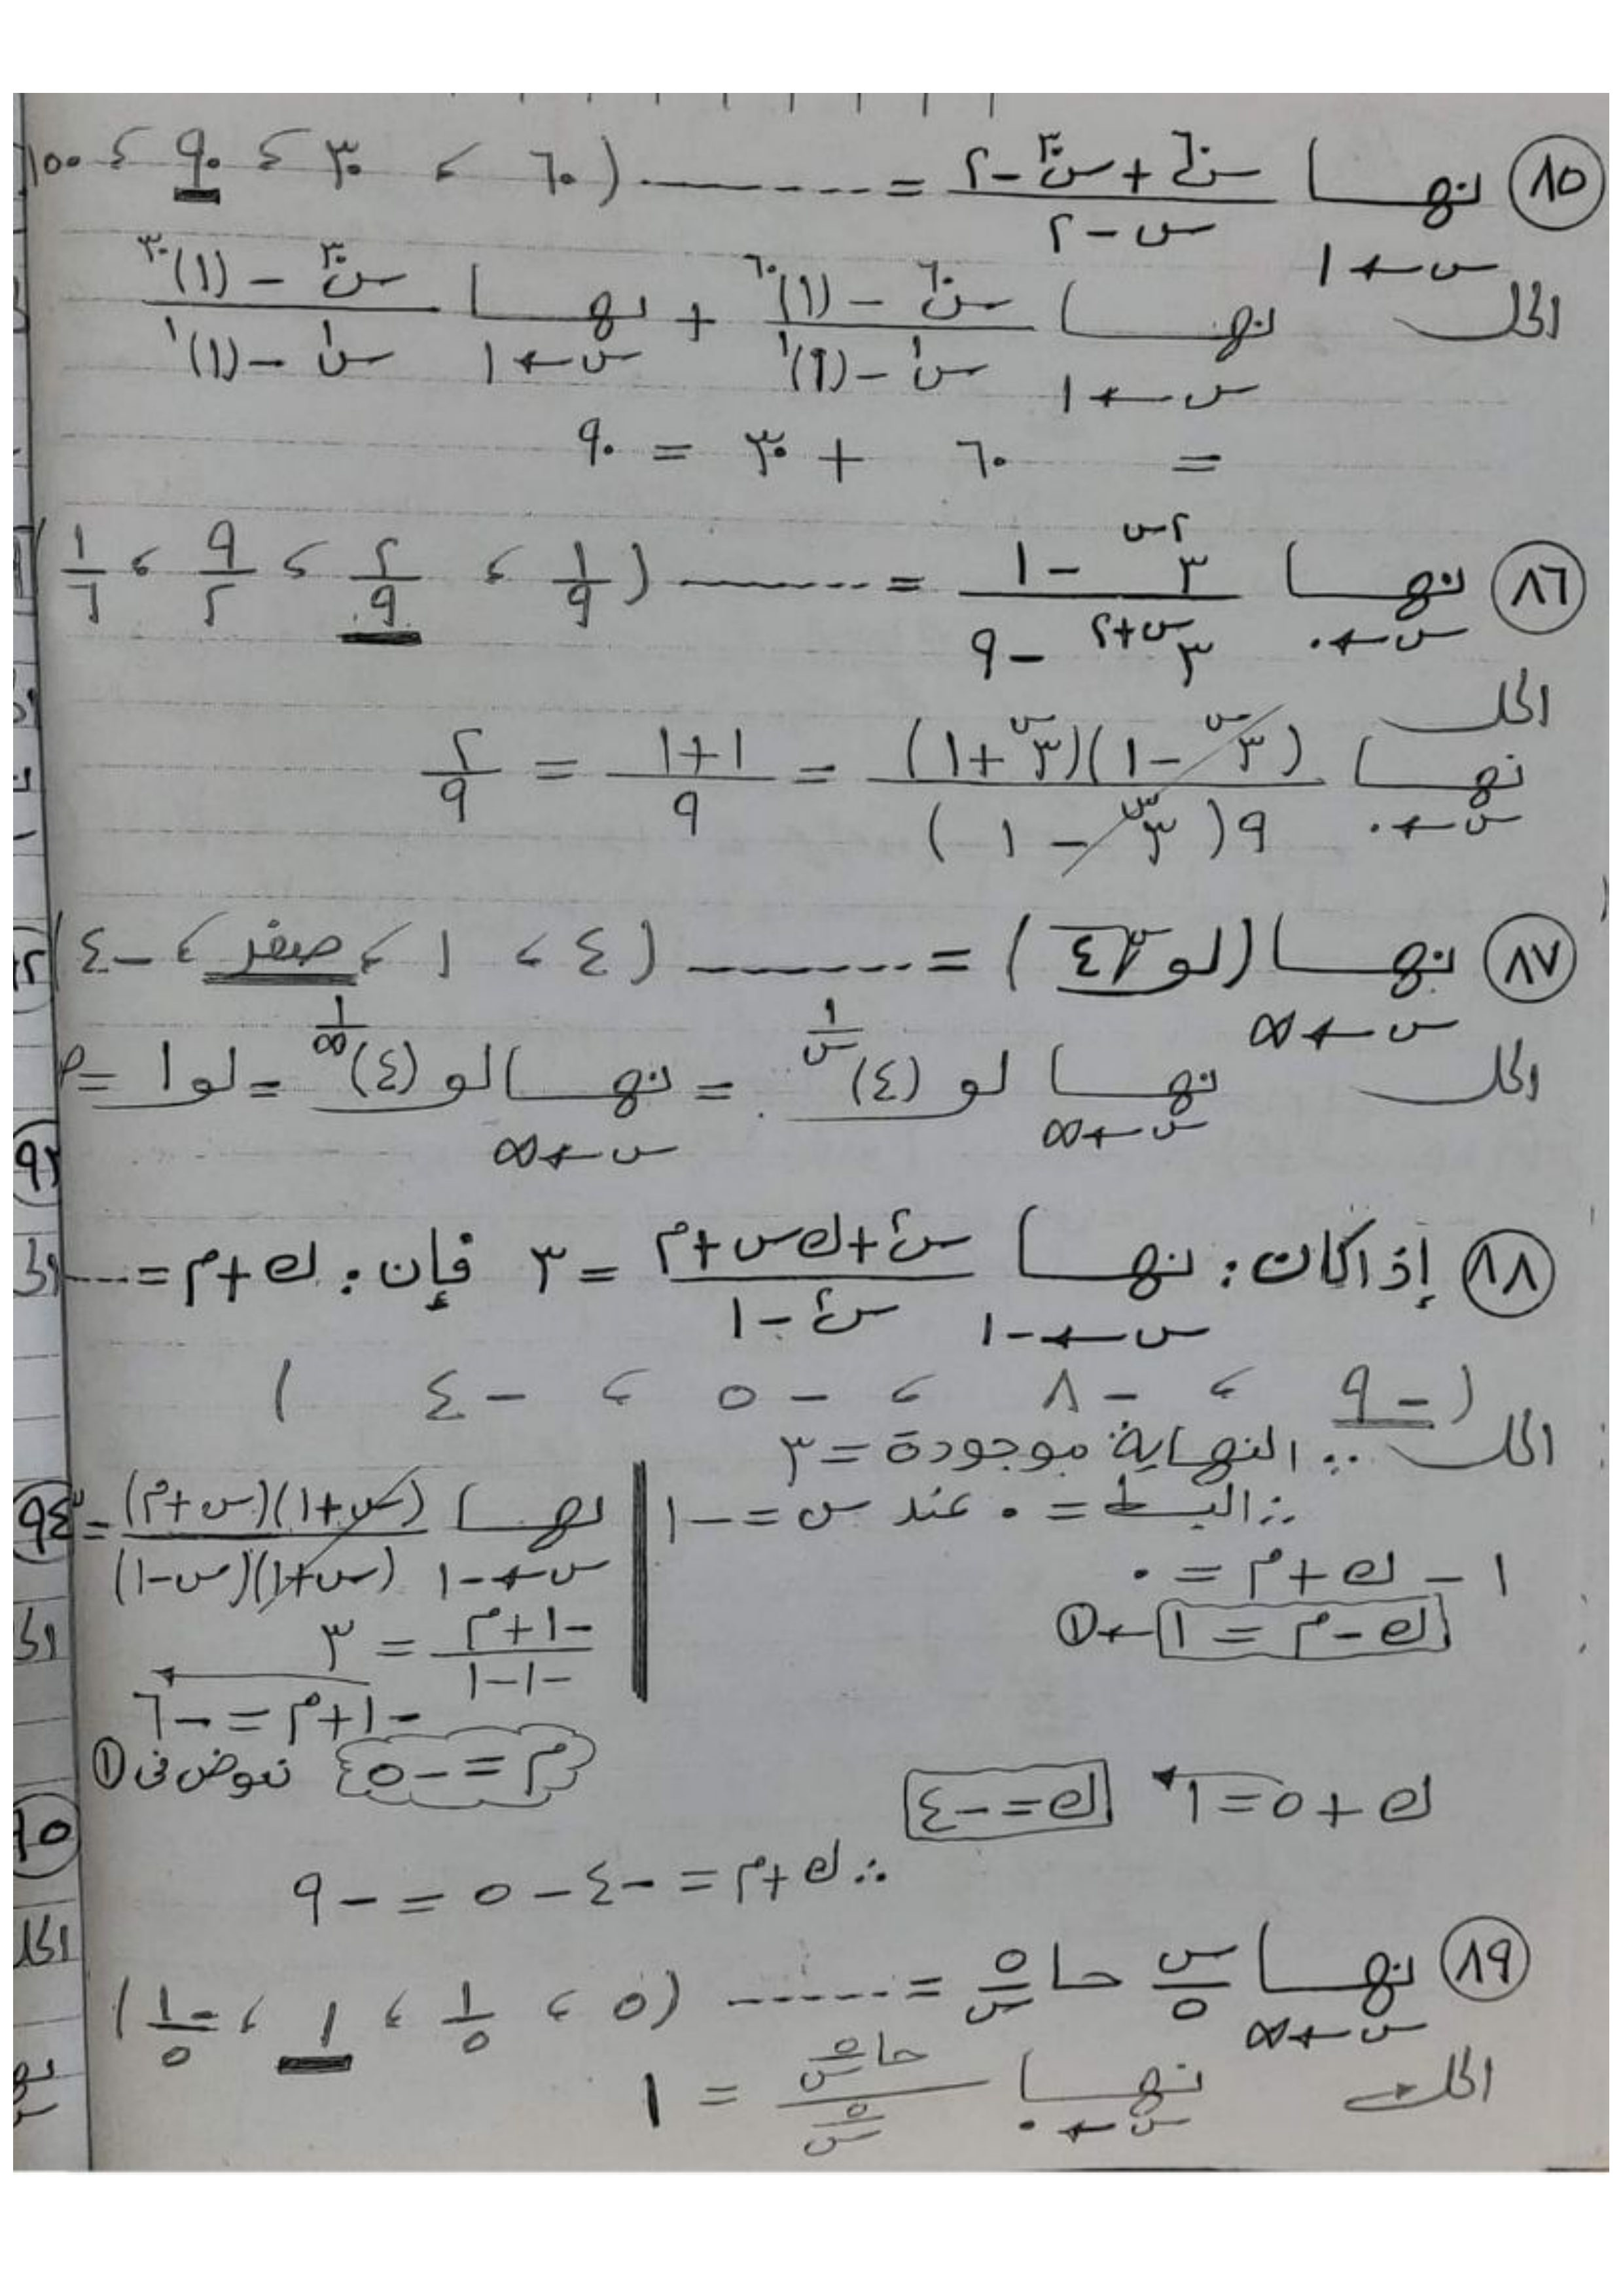 ٨٥ نهـــا س→١ (س^٦٠ + س^٣٠ - ٢)/(س - ٢) = ........ (٦٠ ، ٣٠ ، ٩٠ ، ١٠٠
الحل نهـــا س→١ (س^٦٠ - (١)^٦٠)/(س^١ - (١)^١) + نهـــا س→١ (س^٣٠ - (١)^٣٠)/(س^١ - (١)^١)
= ٦٠ + ٣٠ = ٩٠
٨٦ نهـــا س→٠ (٣^٢س - ١)/(٣^(س+٢) - ٩) = ........ (١/٩ ، ٢/٩ ، ٩/٢ ، ١/٦)
الحل
نهـــا س→٠ (٣^س - ١)(٣^س + ١)/٩(٣^س - ١) = (١+١)/٩ = ٢/٩
٨٧ نهـــا س→∞ (لو س√٤) = ........ (٤ ، ١ ، صفر ، -٤)
الحل نهـــا س→∞ لو (٤)^(١/س) = نهـــا س→∞ لو (٤)^(١/∞) = لو١ =
٨٨ إذا كان : نهـــا س→-١ (س^٢ + ك س + م)/(س^٢ - ١) = ٣ فإن : ك + م = ....
(-٩ ، -٨ ، -٥ ، -٤ )
الحل ∵ النهاية موجودة = ٣
∴ البسط = ٠ عند س = -١
١ - ك + م = ٠
ك - م = ١ ← ①
نهـــا س→-١ (س+١)(س+م)/(س+١)(س-١) = ٣
(-١+م)/(-١-١) = ٣
-١+م = -٦
م = -٥ نعوض فى ①
ك + ٥ = ١ ك = -٤
∴ ك + م = -٤ - ٥ = -٩
٨٩ نهـــا س→∞ س/٥ حا ٥/س = ........ (٥ ، ١/٥ ، ١ ، -١/٥)
الحل نهـــا س→٠ (حا ٥/س)/(٥/س) = ١